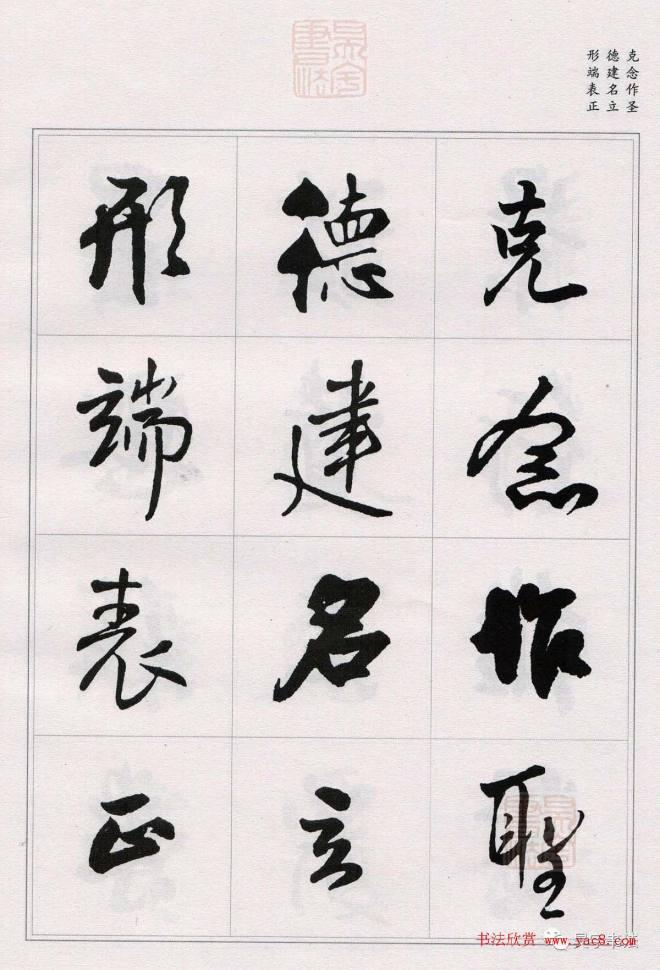 克念作圣
德建名立
形端表正
克念作聖
德建名立
形端表正
书法欣赏 www.yac8.com